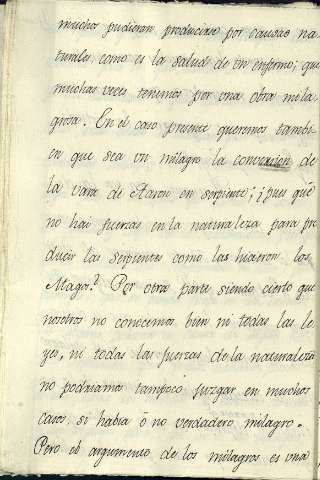 muchos pudieran producirse por causas na
turales, como es la salud de un enfermo; que
muchas veces tenemos por una obra mila
grosa. En el caso presente queremos tambi
en que sea un milagro la conversion de
la vara de Aaron en serpiente; ¡pues qué
no hai fuerzas en la naturaleza para pro
ducir las serpientes como las hicieron los
Magos? Por otra parte siendo cierto que
nosotros no conocemos bien ni todas las le
yes, ni todas las fuerzas de la naturaleza
no podriamos tampoco juzgar en muchos
casos, si habia ó no verdadero milagro.
Pero el argumento de los milagros es una